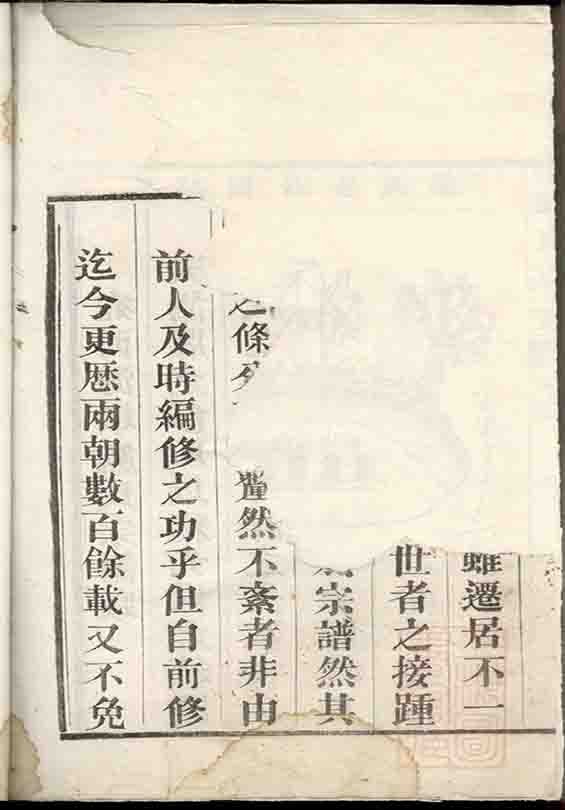 雖遷居不一
世者之接踵
宗譜然其
條 然不紊者非由
前人及時編修之功乎但自前修
迄今更歷兩朝數百餘載又不免